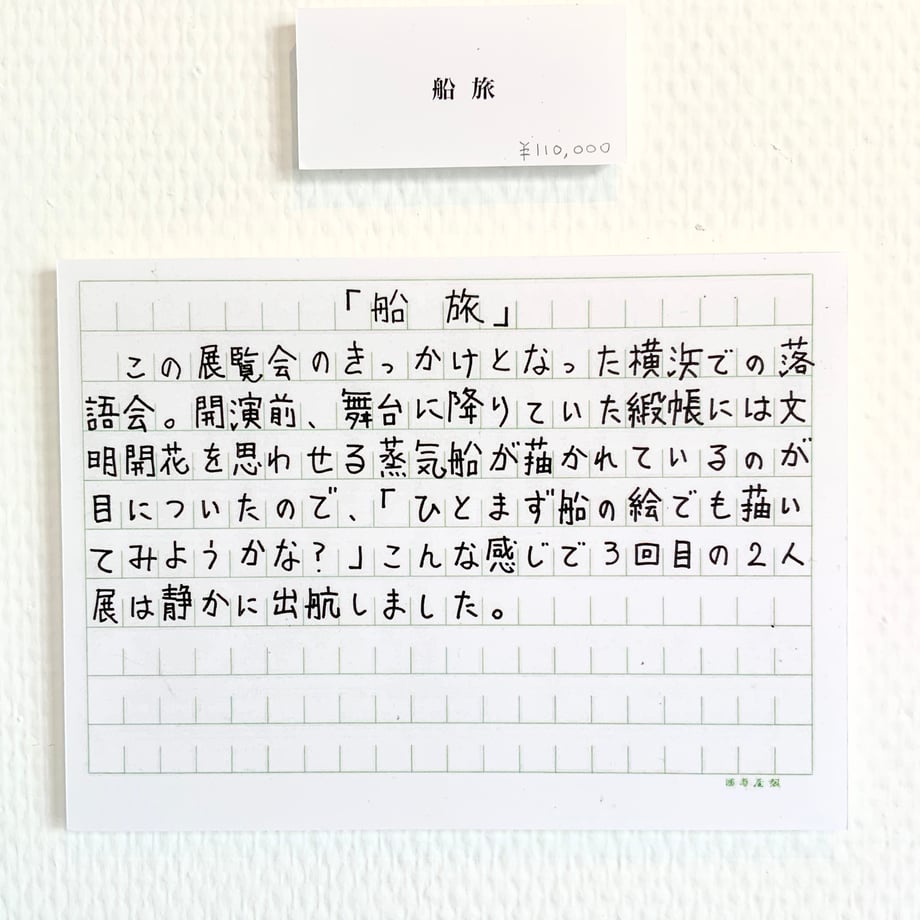 船旅
¥110,000
「船 旅」
この展覧会のきっかけとなった横浜での落
語会。開演前、舞台に降りていた緞帳には文
明開花を思わせる蒸気船が描かれているのが
目についたので、「ひとまず船の絵でも描い
てみようかな?」こんな感じで3回目の2人
展は静かに出航しました。